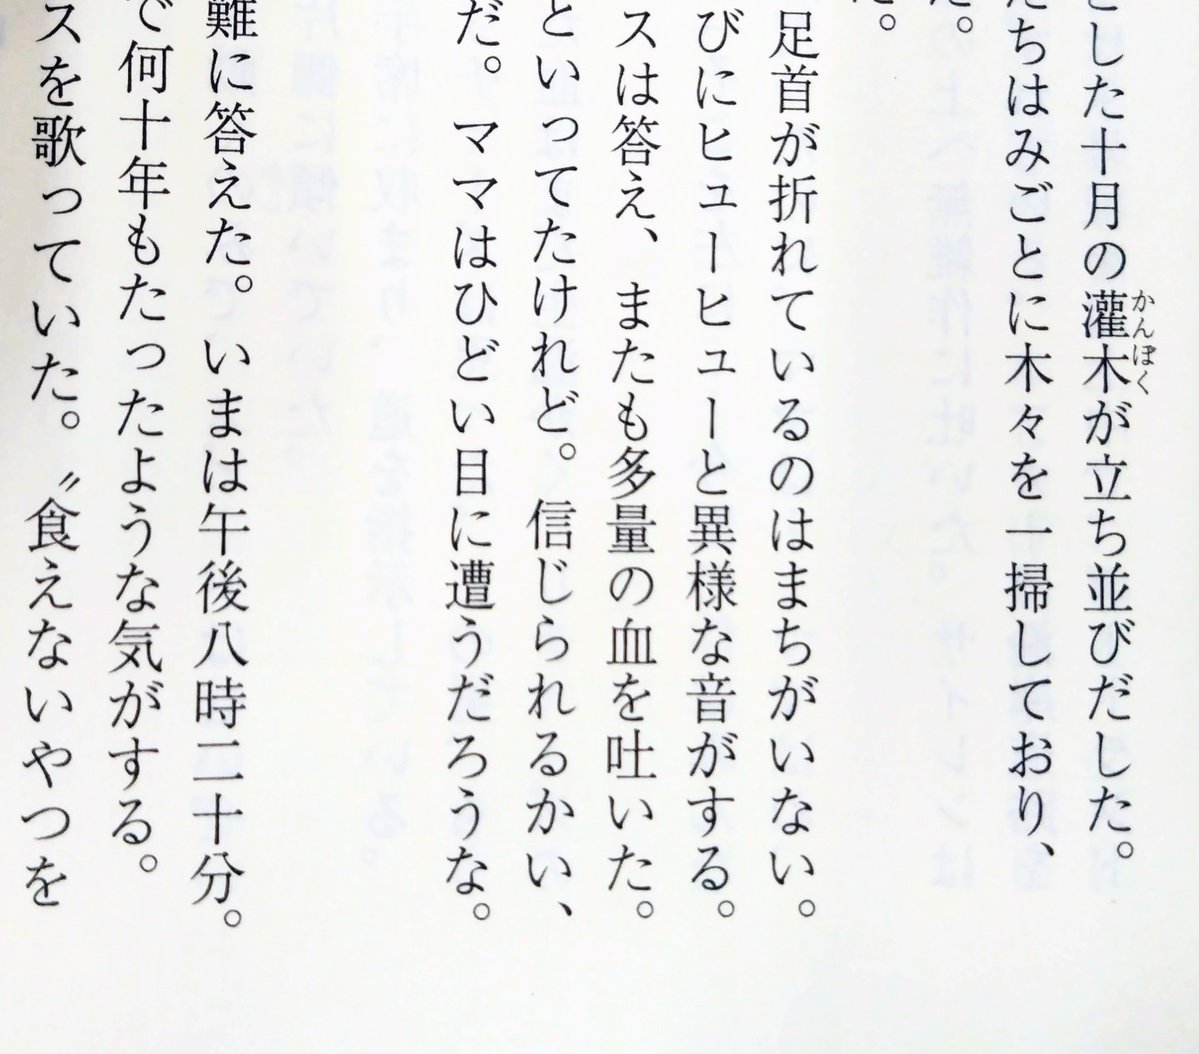 とした十月の灌木が立ち並びだした。
かんぼく
たちはみごとに木々を一掃しており、
た。
た。
足首が折れているのはまちがいない。
びにヒューヒューと異様な音がする。
スは答え、またも多量の血を吐いた。
といってたけれど。信じられるかい、
だ。ママはひどい目に遭うだろうな。
難に答えた。いまは午後八時二十分。
で何十年もたったような気がする。
スを歌っていた。〝食えないやつを